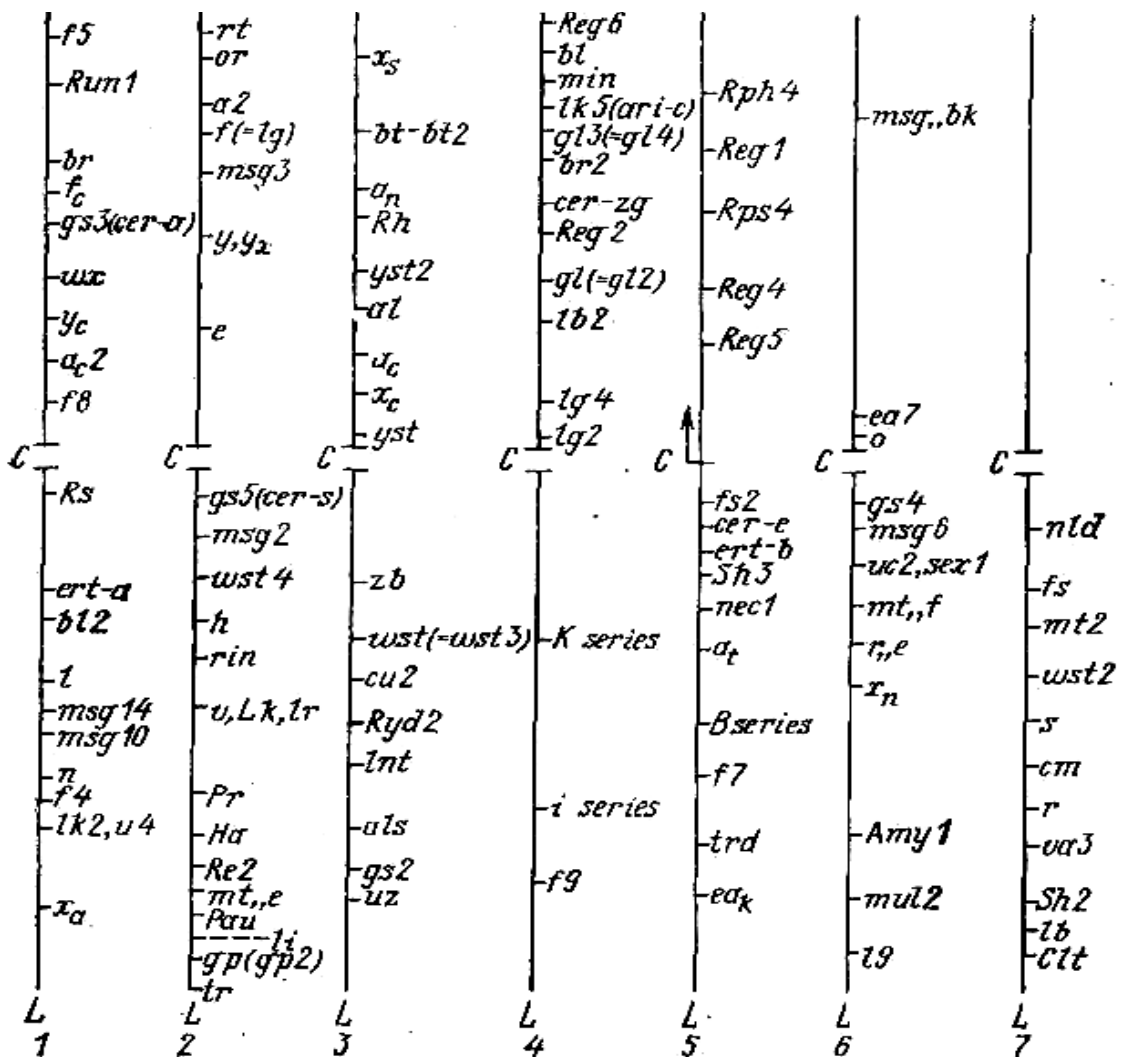 f5
Run1
br
f_c
gs3(cer-a)
wx
y_c
a_c2
f8
C
Rs
ert-a
bl2
l
msg14
msg10
n
f4
lk2,u4
x_a
L
1
rt
or
a2
f(=lg)
msg3
y,y_x
e
C
gs5(cer-s)
msg2
wst4
h
rin
v,Lk,lr
Pr
Ha
Re2
mt,,e
Pau
li
gp(gp2)
tr
L
2
x_s
bt-bt2
a_n
Rh
yst2
al
a_c
x_c
yst
C
zb
wst(=wst3)
cu2
Ryd2
lnt
als
gs2
uz
L
3
Reg6
bl
min
lk5(ari-c)
gl3(=gl4)
br2
cer-zg
Reg2
gl(=gl2)
lb2
lg4
lg2
C
K series
i series
f9
L
4
Rph4
Reg1
Rps4
Reg4
Reg5
C
fs2
cer-e
ert-b
Sh3
nec1
a_t
B series
f7
trd
ea_k
L
5
msg,,bk
ea7
o
C
gs4
msg6
uc2,sex1
mt,,f
r,,e
x_n
Amy1
mul2
l9
L
6
C
nld
fs
mt2
wst2
s
cm
r
va3
Sh2
lb
Clt
L
7